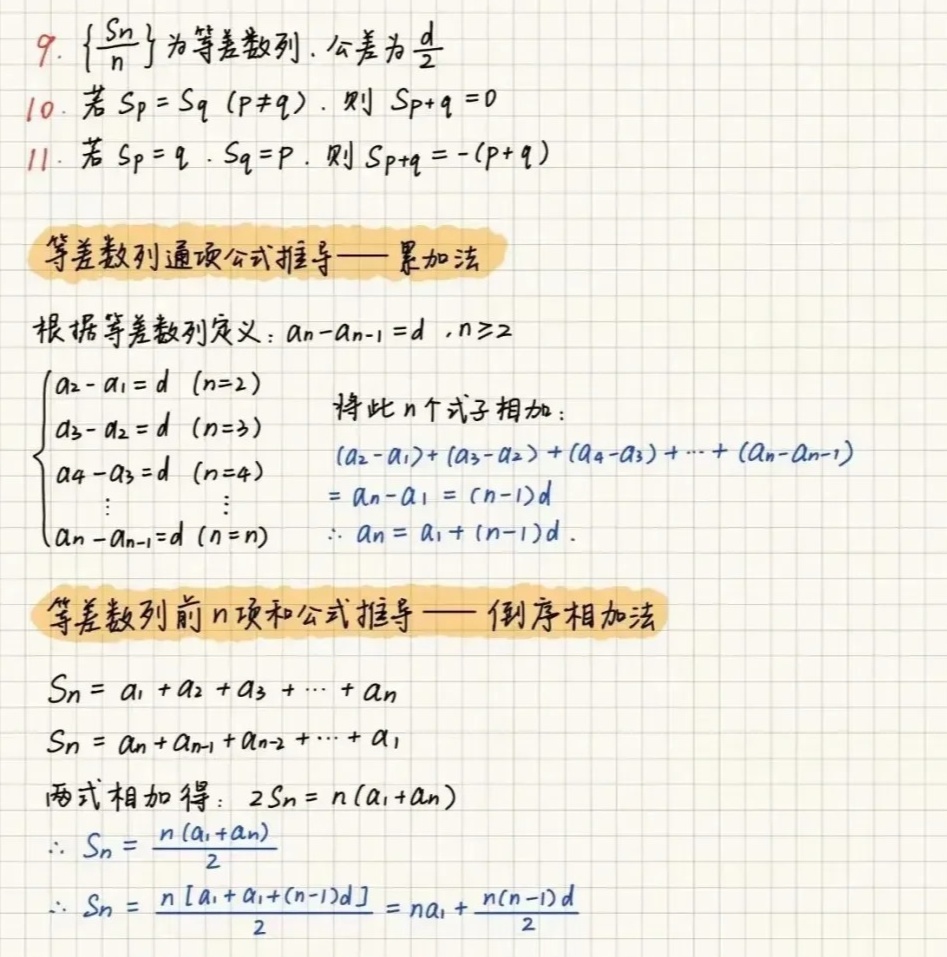 9. {Sn/n} 为等差数列. 公差为 d/2
10. 若 Sp = Sq (p≠q). 则 Sp+q = 0
11. 若 Sp = q . Sq = p. 则 Sp+q = -(p+q)
等差数列通项公式推导——累加法
根据等差数列定义: an - an-1 = d , n≥2
a2 - a1 = d (n=2)
a3 - a2 = d (n=3)
a4 - a3 = d (n=4)
⋮ ⋮
an - an-1 = d (n=n)
将此n个式子相加:
(a2-a1)+(a3-a2)+(a4-a3)+…+(an-an-1)
= an - a1 = (n-1)d
∴ an = a1 + (n-1)d .
等差数列前n项和公式推导——倒序相加法
Sn = a1 + a2 + a3 + … + an
Sn = an + an-1 + an-2 + … + a1
两式相加得: 2Sn = n(a1+an)
∴ Sn = n(a1+an)/2
∴ Sn = n[a1+a1+(n-1)d]/2 = na1 + n(n-1)d/2